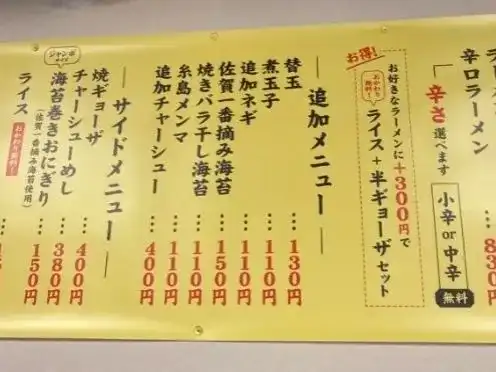 ラーメン…830円
辛口ラーメン
「辛さ選べます
小辛or中辛
無料
お得!
お好きなラーメンに+300円で
おかわり無料!
ライス+半ギョーザセット
追加メニュー
替玉…130円
煮玉子…110円
追加ネギ…110円
佐賀一番摘み海苔…150円
焼きバラ干し海苔…110円
糸島メンマ…110円
追加チャーシュー…400円
サイドメニュー
焼ギョーザ…400円
チャーシューめし…380円
ジャンボサイズ
海苔巻きおにぎり…150円
(佐賀一番摘み海苔使用)
ライス
おかわり無料!